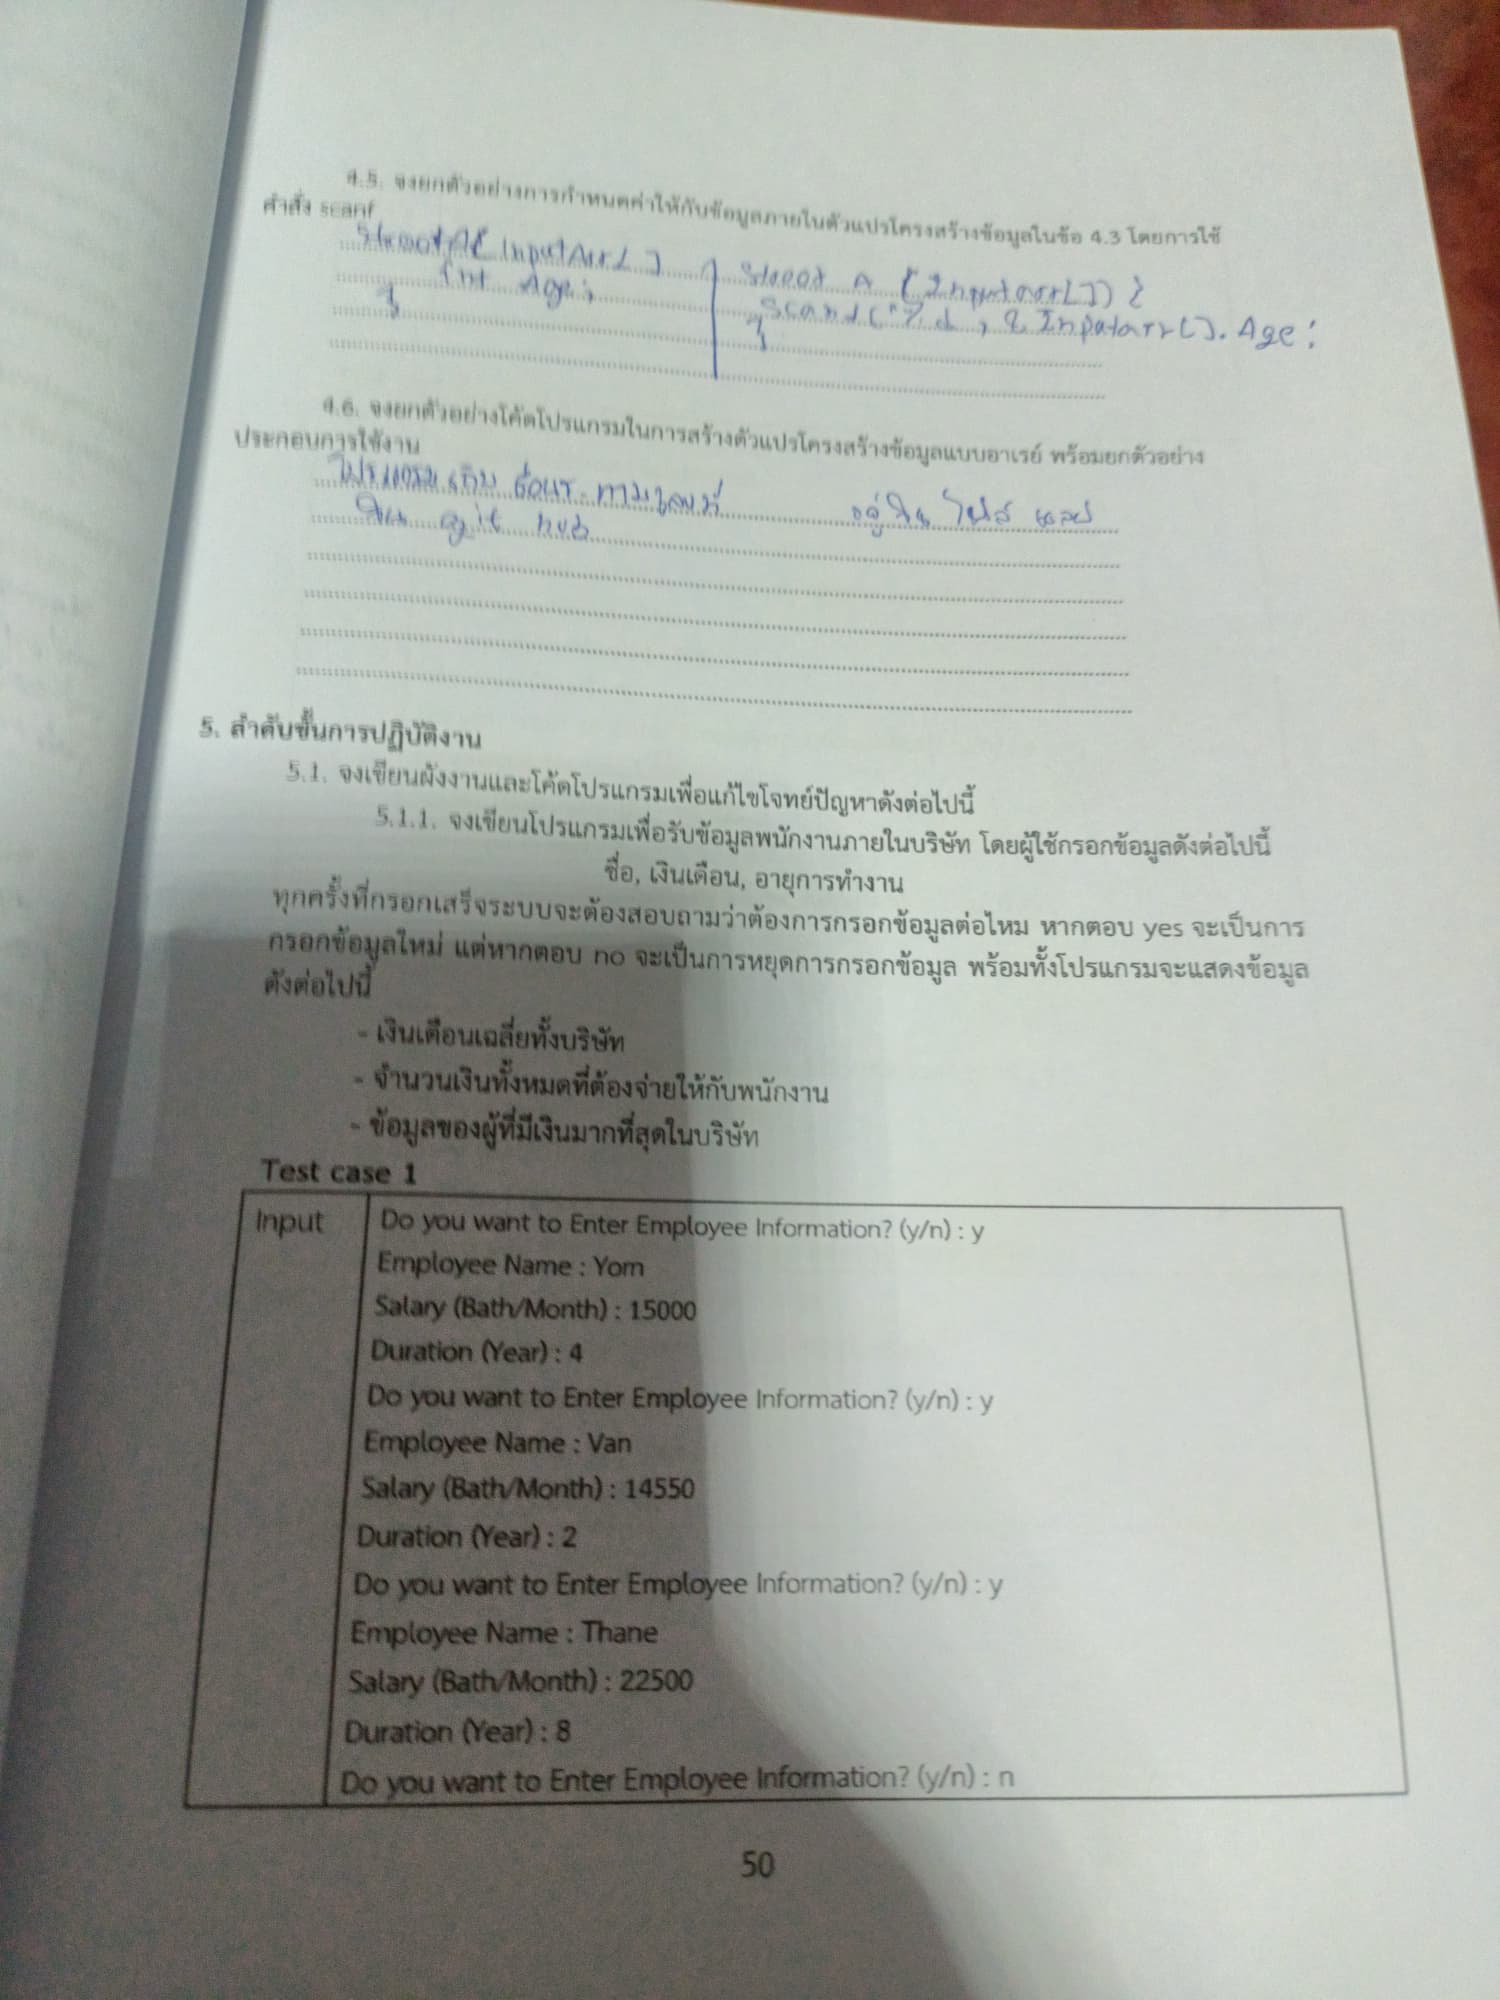 4.5. จงยกตัวอย่างการกำหนดค่าให้กับข้อมูลภายในตัวแปรโครงสร้างข้อมูลในข้อ 4.3 โดยการใช้
คำสั่ง scanf
InputArr[]
Int Age;
}
[Inputarr[]) {
("%d, & Inputarr[]. Age;
}
4.6. จงยกตัวอย่างโค้ดโปรแกรมในการสร้างตัวแปรโครงสร้างข้อมูลแบบอาเรย์ พร้อมยกตัวอย่าง
ประกอบการใช้งาน
โปรแกรม เก็บ อยู่ใน ไฟล์
ใน git hub
5. ลำดับขั้นการปฏิบัติงาน
5.1. จงเขียนผังงานและโค้ดโปรแกรมเพื่อแก้ไขโจทย์ปัญหาดังต่อไปนี้
5.1.1. จงเขียนโปรแกรมเพื่อรับข้อมูลพนักงานภายในบริษัท โดยผู้ใช้กรอกข้อมูลดังต่อไปนี้
ชื่อ, เงินเดือน, อายุการทำงาน
ทุกครั้งที่กรอกเสร็จระบบจะต้องสอบถามว่าต้องการกรอกข้อมูลต่อไหม หากตอบ yes จะเป็นการ
กรอกข้อมูลใหม่ แต่หากตอบ no จะเป็นการหยุดการกรอกข้อมูล พร้อมทั้งโปรแกรมจะแสดงข้อมูล
ดังต่อไปนี้
- เงินเดือนเฉลี่ยทั้งบริษัท
- จำนวนเงินทั้งหมดที่ต้องจ่ายให้กับพนักงาน
- ข้อมูลของผู้ที่มีเงินมากที่สุดในบริษัท
Test case 1
Input Do you want to Enter Employee Information? (y/n) : y
Employee Name : Yom
Salary (Bath/Month) : 15000
Duration (Year) : 4
Do you want to Enter Employee Information? (y/n) : y
Employee Name : Van
Salary (Bath/Month) : 14550
Duration (Year) : 2
Do you want to Enter Employee Information? (y/n) : y
Employee Name : Thane
Salary (Bath/Month) : 22500
Duration (Year) : 8
Do you want to Enter Employee Information? (y/n) : n
50